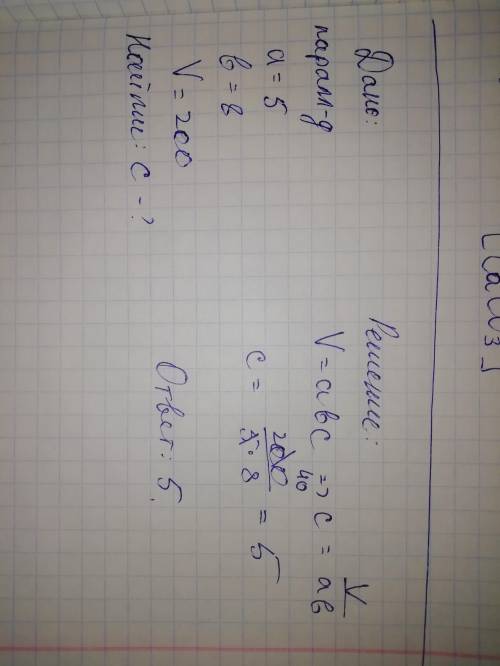 [CaCO3]
Дано:
паралл-д
a = 5
b = 8
V = 200
Найти: c - ?
Решение:
V = abc => c = V/ab
c = 200/5·8 = 5
40
Ответ: 5.